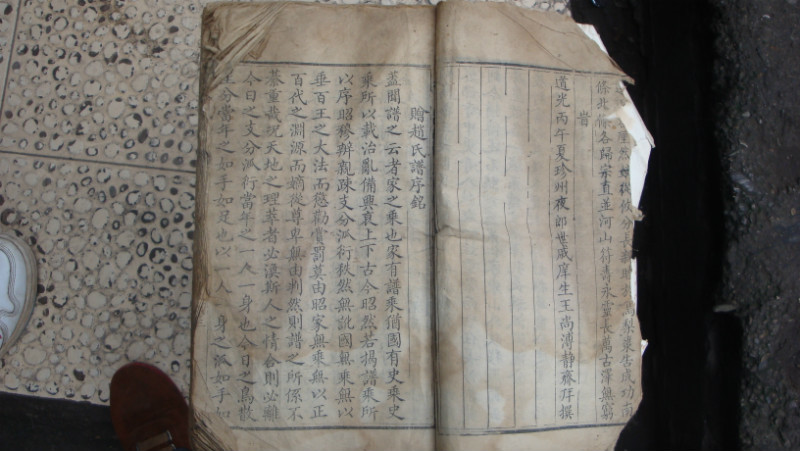 條北脩各歸宗直並河山符壽永靈長萬古澤無窮
道光丙午夏珍州夜郎世戚庠生王尚溥靜齋拜撰
贈趙氏譜序銘
蓋聞譜之云者家之乘也家有譜乘猶國有史乘史
乘所以載治亂備興衰上下古今昭然若揭譜乘所
以序昭穆辨親疎支分派衍秩然無訛國無乘無以
垂百王之大法而懲勸賞罰莫由昭家無乘無以正
百代之淵源而嫡從尊卑無由判然則譜之所係不
綦重哉況天地之理萃者必渙斯人之情合則必離
今日之支分派衍當年之一人一身也今日之鳥散
分當年之如手如足也以一人一身之派如手如